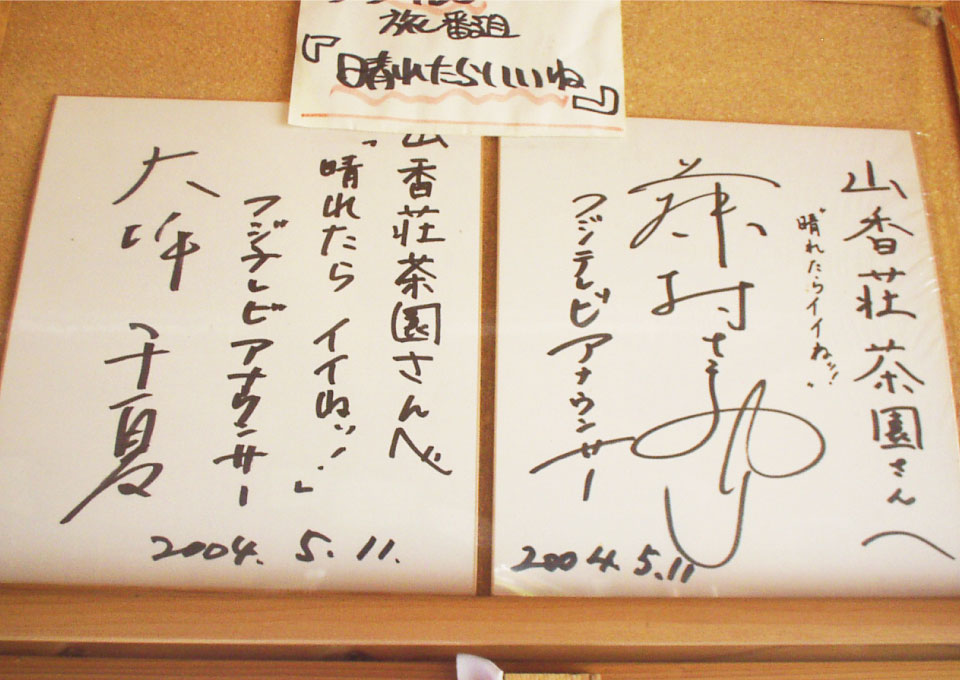 旅番組
『晴れたらいいね』
山香荘茶園さんへ
"晴れたらイイねッ!"
藤村さおり
フジテレビアナウンサー
2004.5.11
山香荘茶園さんへ
「晴れたら イイねッ!」
フジテレビアナウンサー
大坪 千夏
2004. 5. 11.